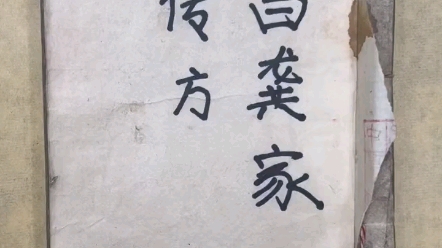 白龚家
传方